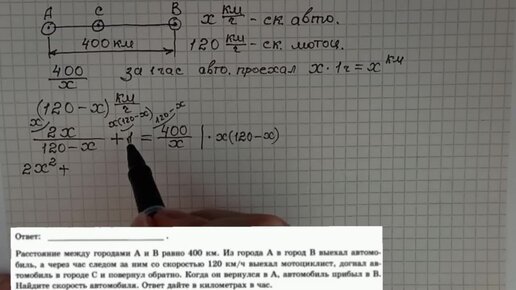 A C B x км/г - ск. авто.
400 км 120 км/г - ск. мотоц.
400/x за 1 час авто. проехал x · 1г = x км
(120-x) км/г
x x(120-x) 120-x
2x/(120-x) + 1 = 400/x | · x(120-x)
2x² +
Ответ: ____________________.
Расстояние между городами А и В равно 400 км. Из города А в город В выехал автомо-
биль, а через час следом за ним со скоростью 120 км/ч выехал мотоциклист, догнал ав-
томобиль в городе С и повернул обратно. Когда он вернулся в А, автомобиль прибыл в В.
Найдите скорость автомобиля. Ответ дайте в километрах в час.